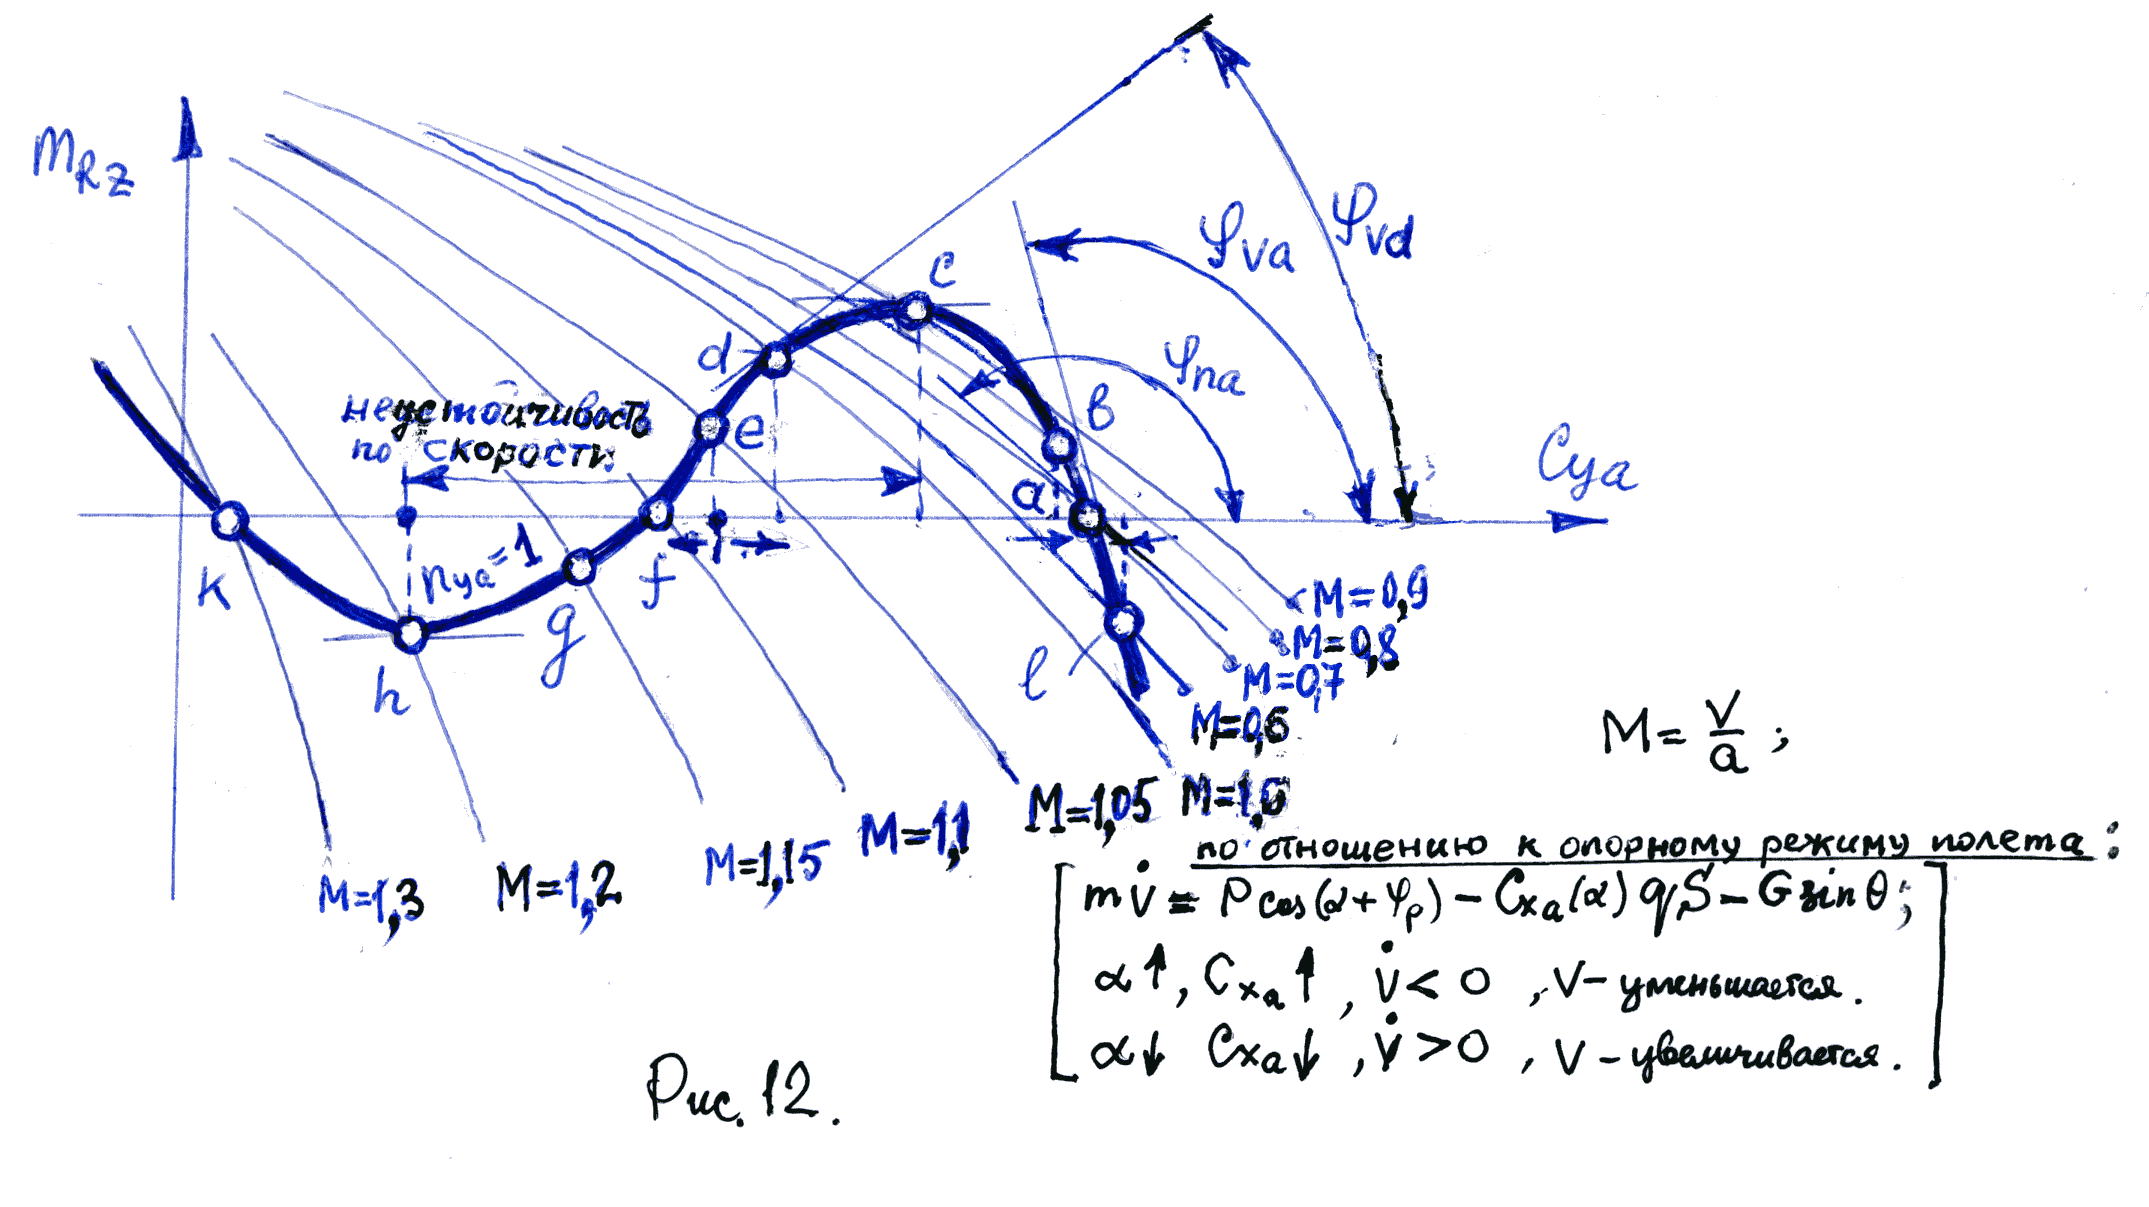 m_Rz
φ_vd
φ_va
φ_na
c
d
e
в
a
C_ya
неустойчивость
по скорости
n_ya = 1
k
h
g
f
l
M=0,9
M=0,8
M=0,7
M=0,6
M=1,0
M=1,05
M=1,1
M=1,15
M=1,2
M=1,3
M = V/a ;
по отношению к опорному режиму полета :
mv̇ = P cos(α+φ_p) − C_xa(α) qS − G sin θ;
α↑, C_xa↑, v̇ < 0 , V − уменьшается.
α↓ C_xa↓, v̇ > 0 , V − увеличивается.
Рис. 12.